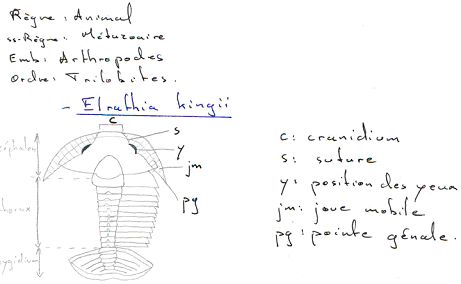 Règne : Animal
ss-Règne : Métazoaire
Emb : Arthropodes
Ordre : Trilobites.
- Elrathia kingii
c
s
y
jm
pg
céphalon
thorax
pygidium
c : cranidium
s : suture
y : position des yeux
jm : joue mobile
pg : pointe génale.